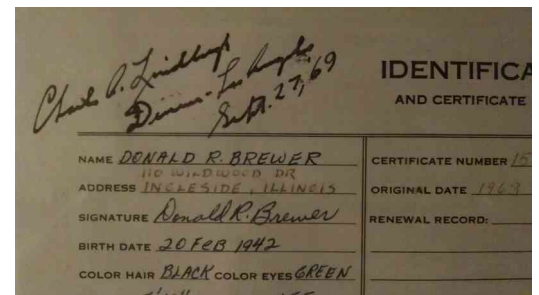 Charles A. Lindbergh
Denver - Los Angeles
Sept. 27, 69
IDENTIFICA
AND CERTIFICATE
NAME DONALD R. BREWER
110 WILDWOOD DR
ADDRESS INGLESIDE, ILLINOIS
SIGNATURE Donald R. Brewer
BIRTH DATE 20 FEB 1942
COLOR HAIR BLACK COLOR EYES GREEN
CERTIFICATE NUMBER 15
ORIGINAL DATE 1963
RENEWAL RECORD: